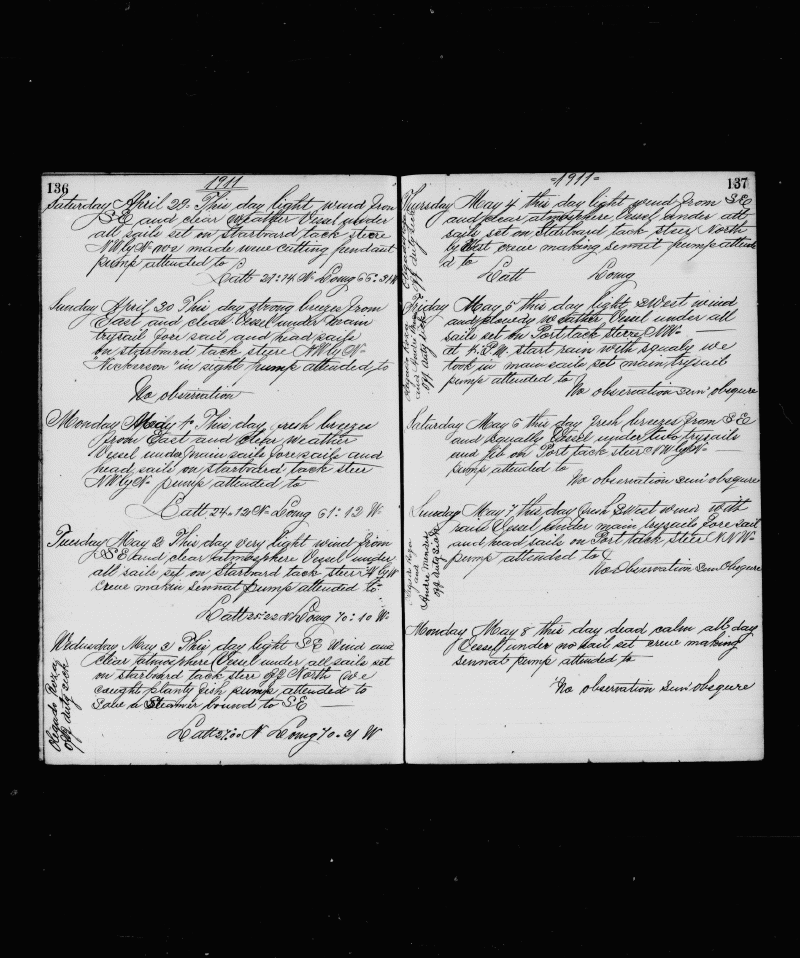 136
1911
Saturday April 29. This day light wind from
S.E and clear weather Vessel under
all sails set on starboard tack steere
NWlyN made cutting pendant
pump attended to
Latt 21:14 N Long 65:
Sunday April 30 This day strong breezes from
East and clear Vessel under main
trysail fore sail and head sails
on starboard tack steere NWly N
in sight pump attended to
No observation
Monday May 1 This day fresh breezes
from East and clear weather
Vessel under main sails fore sails and
head sails on starboard tack steer
NWlyN pump attended to
Latt 24.12 N Long 61:12 W
Tuesday May 2 This day very light wind from
S.E and clear atmosphere Vessel under
all sails set on starboard tack steer
Crue makin sennat pump attended to
Latt 25:22 N Long 70:10 W
Wednesday May 3 This day light S.E Wind and
clear atmosphere Vessel under all sails set
on starboard tack stere North we
caught planty fish pump attended to
a Steamer bound to S.E
Latt 27:00 N Long 70-31 W
off duty sick
137
=1911=
Thursday May 4 this day light wind from S.E
and clear atmosphere Vessel under all
sails set on Starboard tack steer North
by West crue making sennat pump attende
d to
Latt Long
Friday May 5 this day light SWest wind
and clowdy weather Vessel under all
sails set on Port tack steere NW
at 4. P.M. start rain with squals we
took in main sails set main trysail
pump attended to
No observation sun obsqure
off duty sick
Saturday May 6 this day fresh breezes from S E
and squally Vessel under two trysails
and jib on Port tack steer NWlyN
pump attended to
No observation sun obsqure
Sunday May 7 this day fresh SWest wind with
rain Vessel under main trysails fore sail
and head sails on Port tack steer NNW
pump attended to
No observation sun obsqure
and
Andre Mendes
off duty sick
Monday May 8 this day dead calm all day
Vessel under no sail set crue making
sennat pump attended to
No observation sun obsqure